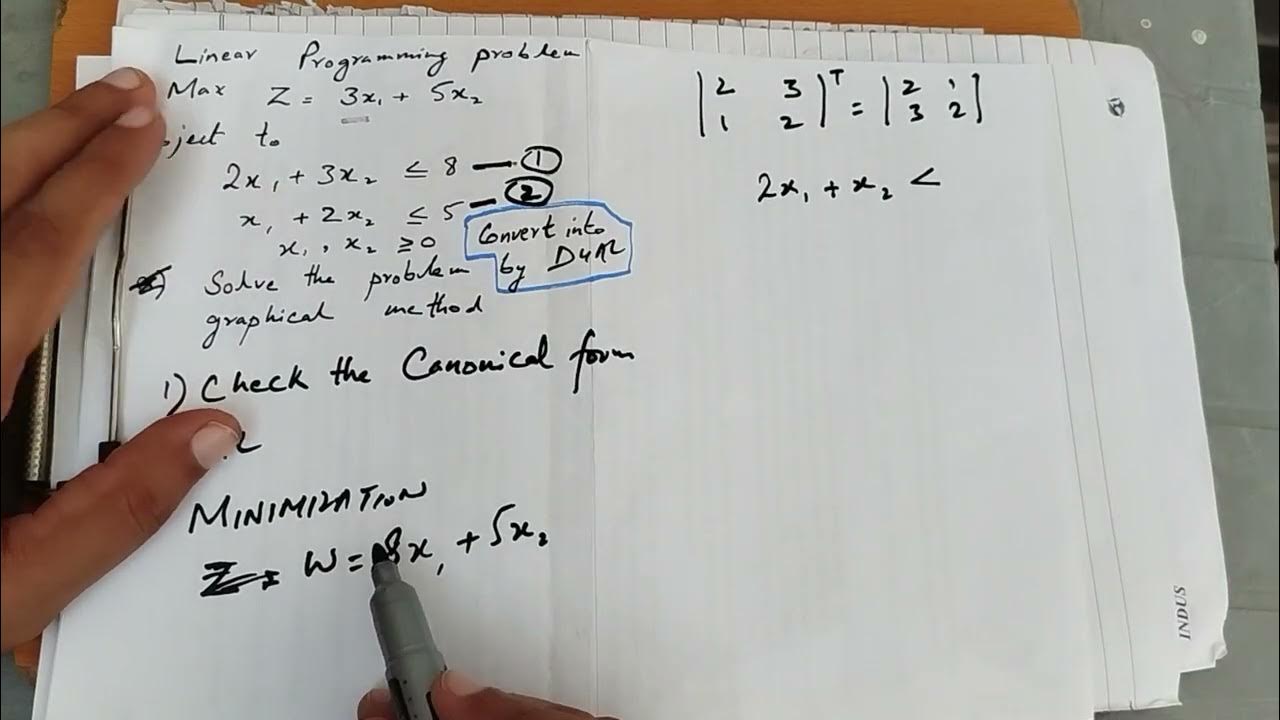 Linear Programming problem
Max Z = 3x₁ + 5x₂
ject to
2x₁ + 3x₂ ≤ 8 — ①
x₁ + 2x₂ ≤ 5 — ②
x₁, x₂ ≥ 0
Convert into
DUAL
Solve the problem by
graphical method
1) Check the Canonical form
MINIMIZATION
W = 8x₁ + 5x₂
|2 3|ᵀ = |2 1|
|1 2| |3 2|
2x₁ + x₂ <
INDUS